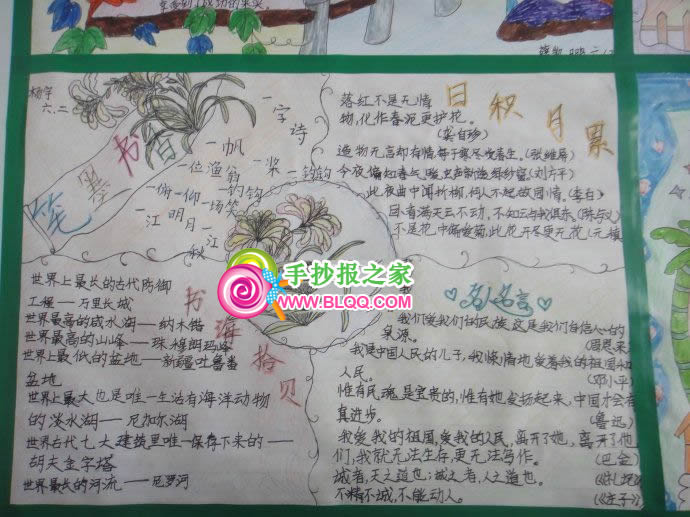 杨宇
六.二
书香
笔墨
一字诗
一帆一桨
一位渔翁一钓钩
一俯一仰一场笑
一江明月一江秋
日积月累
落红不是无情
物,化作春泥更护花。
(龚自珍)
造物无言却有情,每于寒尽觉春生。(张维屏)
今夜偏知春气暖,虫声新透绿纱窗(刘方平)
此夜曲中闻折柳,何人不起故园情。(李白)
卧看满天云不动,不知云与我俱东(陈与义)
不是花中偏爱菊,此花开尽更无花(元稹
手抄报之家
WWW.BLQQ.COM
书海拾贝
世界上最长的古代防御
工程——万里长城
世界最高的咸水湖——纳木错
世界最高的山峰——珠穆朗玛峰
世界上最低的盆地——新疆吐鲁番
盆地
世界上最大也是唯一生活有海洋动物
的淡水湖——尼加尔湖
世界古代七大建筑里唯一保存下来的——
胡夫金字塔
世界最长的河流——尼罗河
名人名言
我们爱我们的民族,这是我们自信心的
泉源。
(周恩来
我是中国人民的儿子,我深情地爱着我的祖国和
人民。
(邓小平)
惟有民魂是宝贵的,惟有她发扬起来,中国才会有
真进步。
(鲁迅)
我爱我的祖国,爱我的人民,离开了她,离开了他
们,我就无法生存,更无法写作。
(巴金)
诚者,天之道也;诚之者,人之道也。
不精不诚,不能动人。
(《庄子》